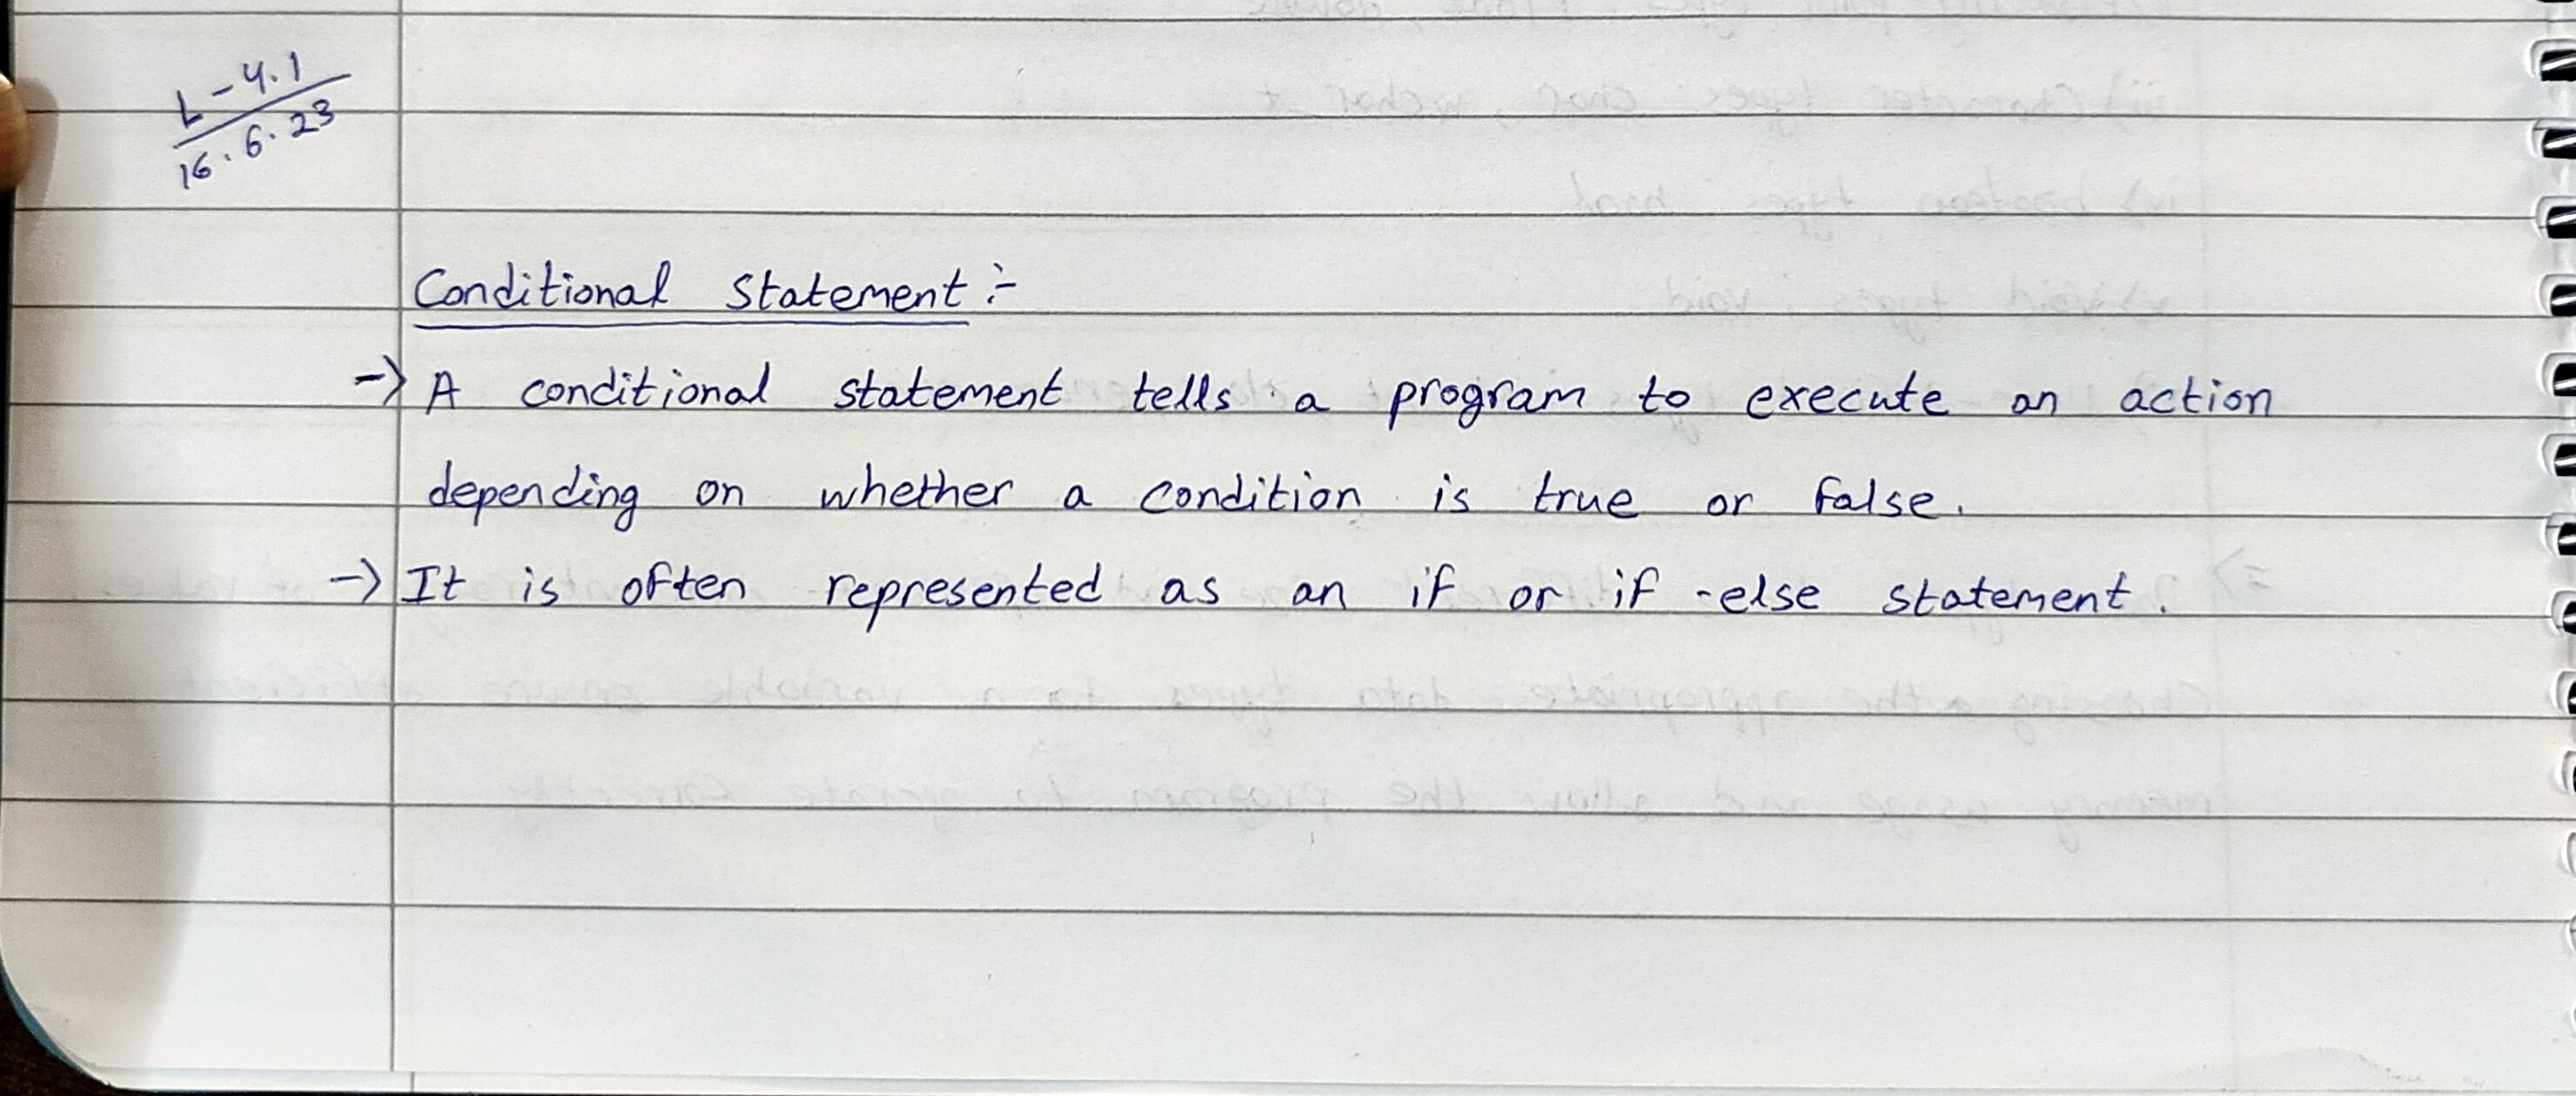 L-4.1
16.6.23
Conditional Statement :-
-> A conditional statement tells a program to execute an action
depending on whether a condition is true or false.
-> It is often represented as an if or if-else statement.